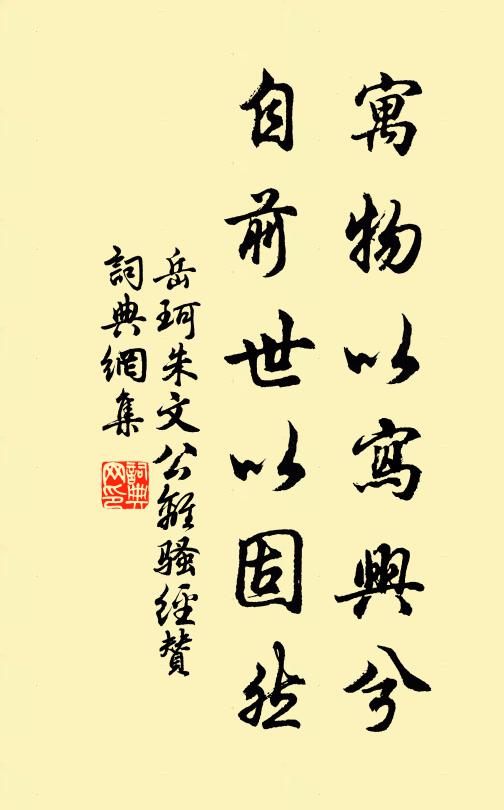 寓物以寫興兮
自前世以固然
岳珂朱文公離騷經贊
詞典網集
詞典網印